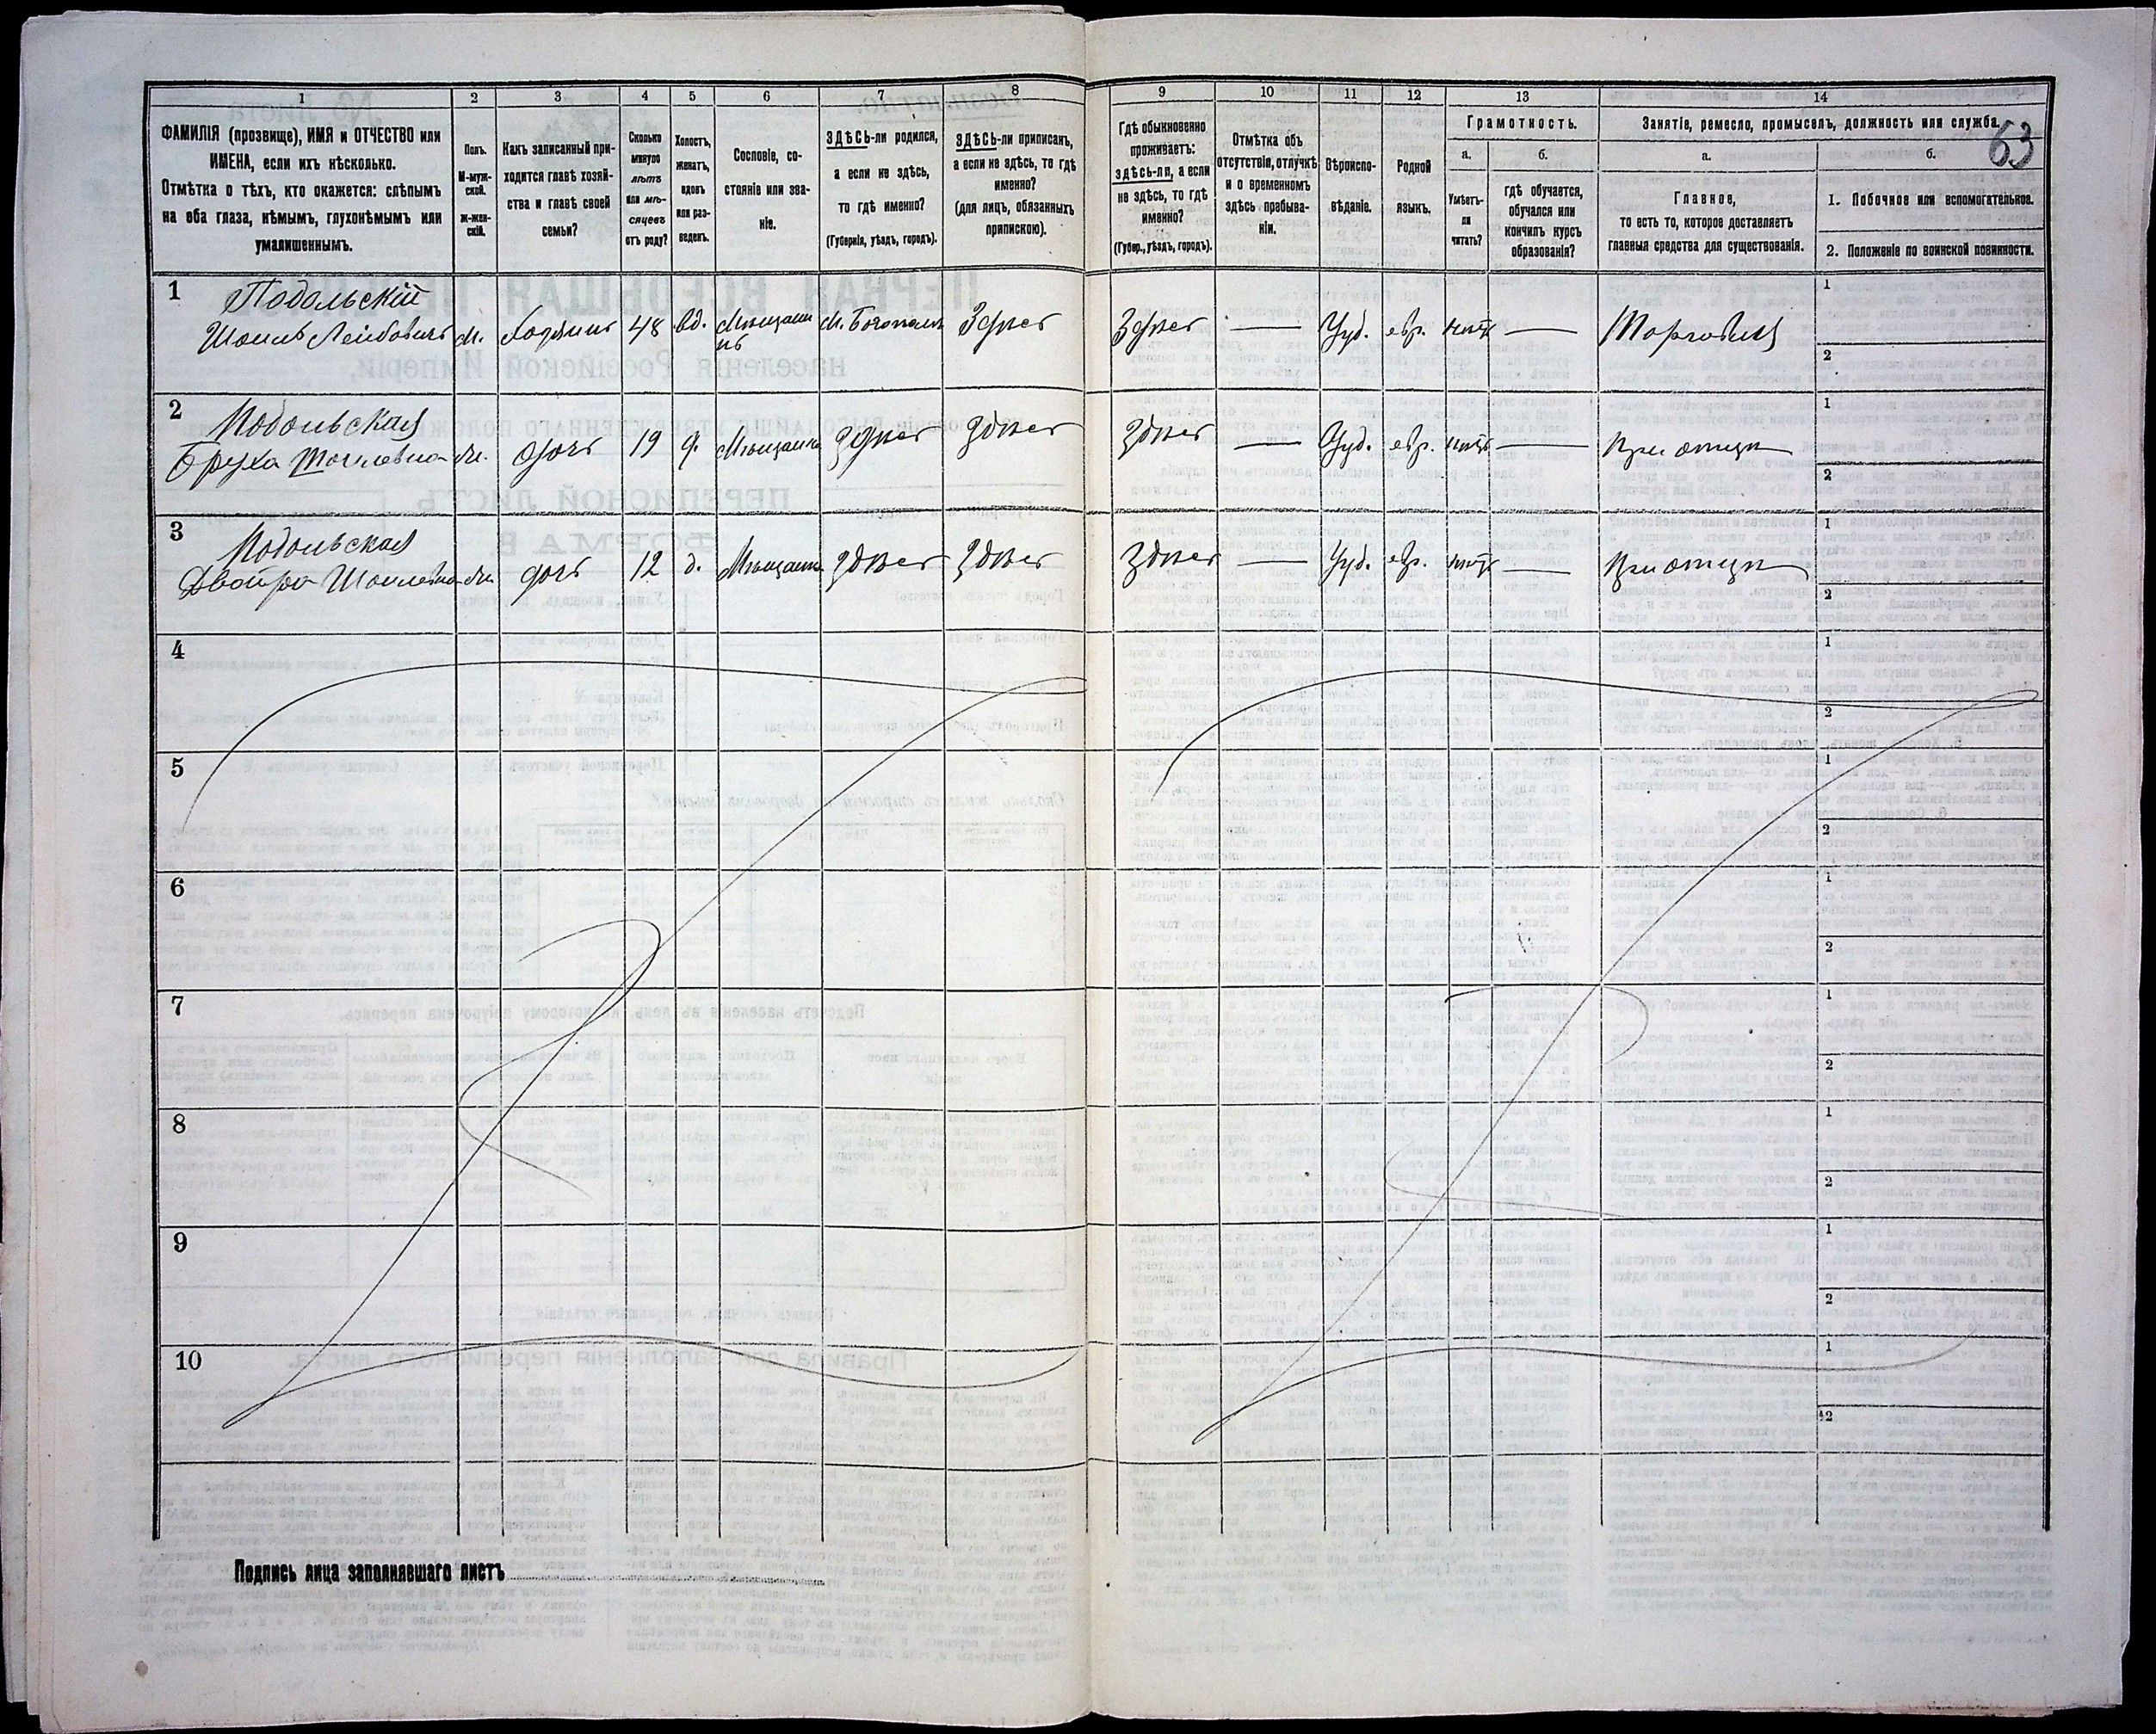 1 2 3 4 5 6 7 8 9 10 11 12 13 14
63
ФАМИЛІЯ (прозвище), ИМЯ и ОТЧЕСТВО или
ИМЕНА, если ихъ нѣсколько.
Отмѣтка о тѣхъ, кто окажется: слѣпымъ
на оба глаза, нѣмымъ, глухонѣмымъ или
умалишеннымъ.
Полъ.
М-муж-
ской.
ж-жен-
скій.
Какъ записанный при-
ходится главѣ хозяй-
ства и главѣ своей
семьи?
Сколько
минуло
лѣтъ
или мѣ-
сяцевъ
отъ роду?
Холостъ,
женатъ,
вдовъ
или раз-
веденъ.
Сословіе, со-
стояніе или зва-
ніе.
ЗДѢСЬ-ли родился,
а если не здѣсь,
то гдѣ именно?
(Губернія, уѣздъ, городъ).
ЗДѢСЬ-ли приписанъ,
а если не здѣсь, то гдѣ
именно?
(для лицъ, обязанныхъ
припискою).
Гдѣ обыкновенно
проживаетъ:
здѣсь-ли, а если
не здѣсь, то гдѣ
именно?
(Губер., уѣздъ, городъ).
Отмѣтка объ
отсутствіи, отлучкѣ
и о временномъ
здѣсь пребыва-
ніи.
Вѣроиспо-
вѣданіе.
Родной
языкъ.
Грамотность.
а.
Умѣетъ-
ли
читать?
б.
гдѣ обучается,
обучался или
кончилъ курсъ
образованія?
Занятіе, ремесло, промыселъ, должность или служба.
а.
Главное,
то есть то, которое доставляетъ
главныя средства для существованія.
б.
1. Побочное или вспомогательное.
2. Положеніе по воинской повинности.
1 Подольскій
Шоиль Лейбовичъ м. Хозяинъ 48 вд. Мѣщани
нъ М. Богополь Здѣсь Здѣсь — Іуд. евр. нѣтъ — Торговля 1
2
2 Подольская
Бруха Шоилевна дочь 19 Мѣщанка Здѣсь Здѣсь Здѣсь — Іуд. евр. нѣтъ — При отцѣ 1
2
3 Подольская
Двойра Шоилевна дочь 12 д. Мѣщанка Здѣсь Здѣсь Здѣсь — Іуд. евр. нѣтъ — При отцѣ 1
2
4 1
2
5 1
2
6 1
2
7 1
2
8 1
2
9 1
2
10 1
2
Подпись лица заполнявшаго листъ